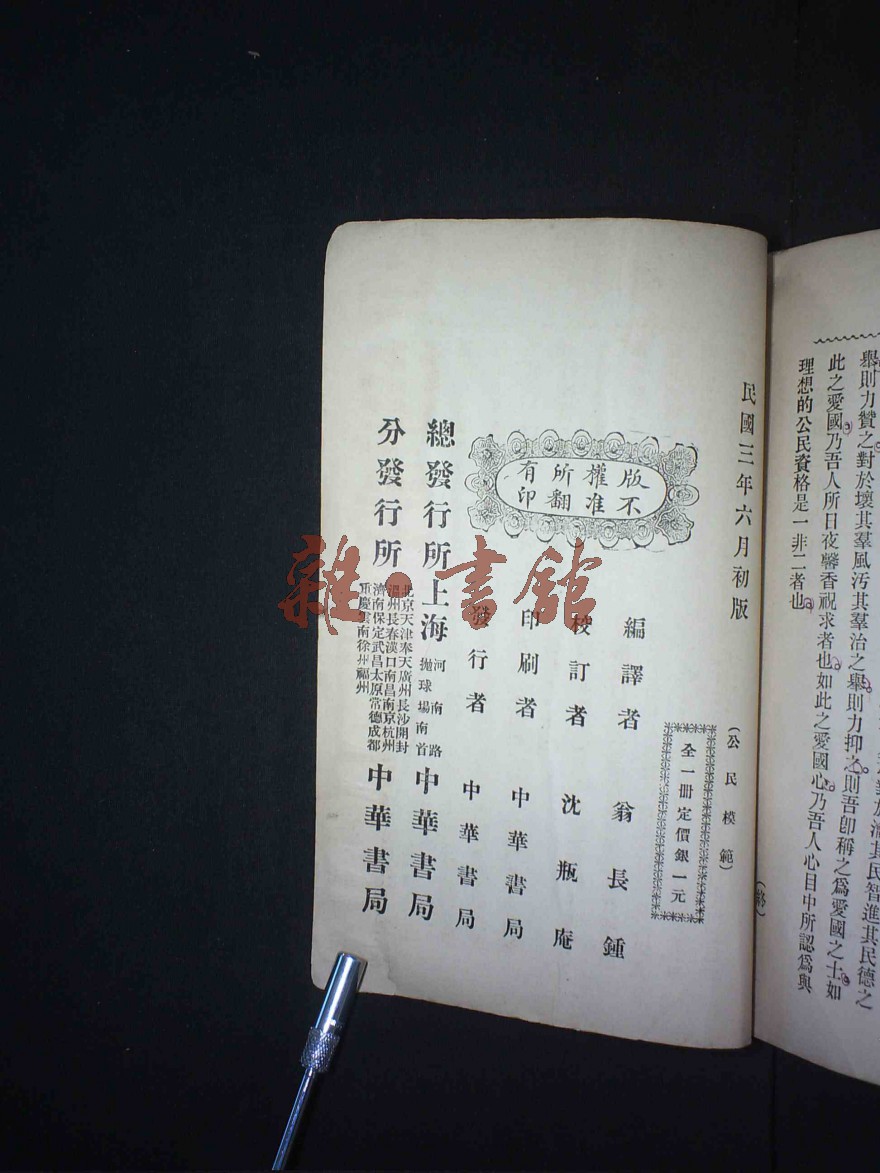 舉則力贊之對於壞其羣風汚其羣治之舉則力抑之則吾卽稱之爲愛國之士如
此之愛國乃吾人所日夜馨香祝求者也如此之愛國心乃吾人心目中所認爲與
理想的公民資格是一非二者也
(終)
民國三年六月初版
(公民模範)
全一冊定價銀一元
版權所有
不准翻印
編譯者 翁長鍾
校訂者 沈瓶庵
印刷者 中華書局
發行者 中華書局
總發行所 上海 河南路拋球場南首 中華書局
分發行所
北京天津奉天廣州長沙開封
溫州長春漢口南昌南京杭州
濟南保定武昌太原常德成都
重慶雲南徐州福州
中華書局
雜·書館